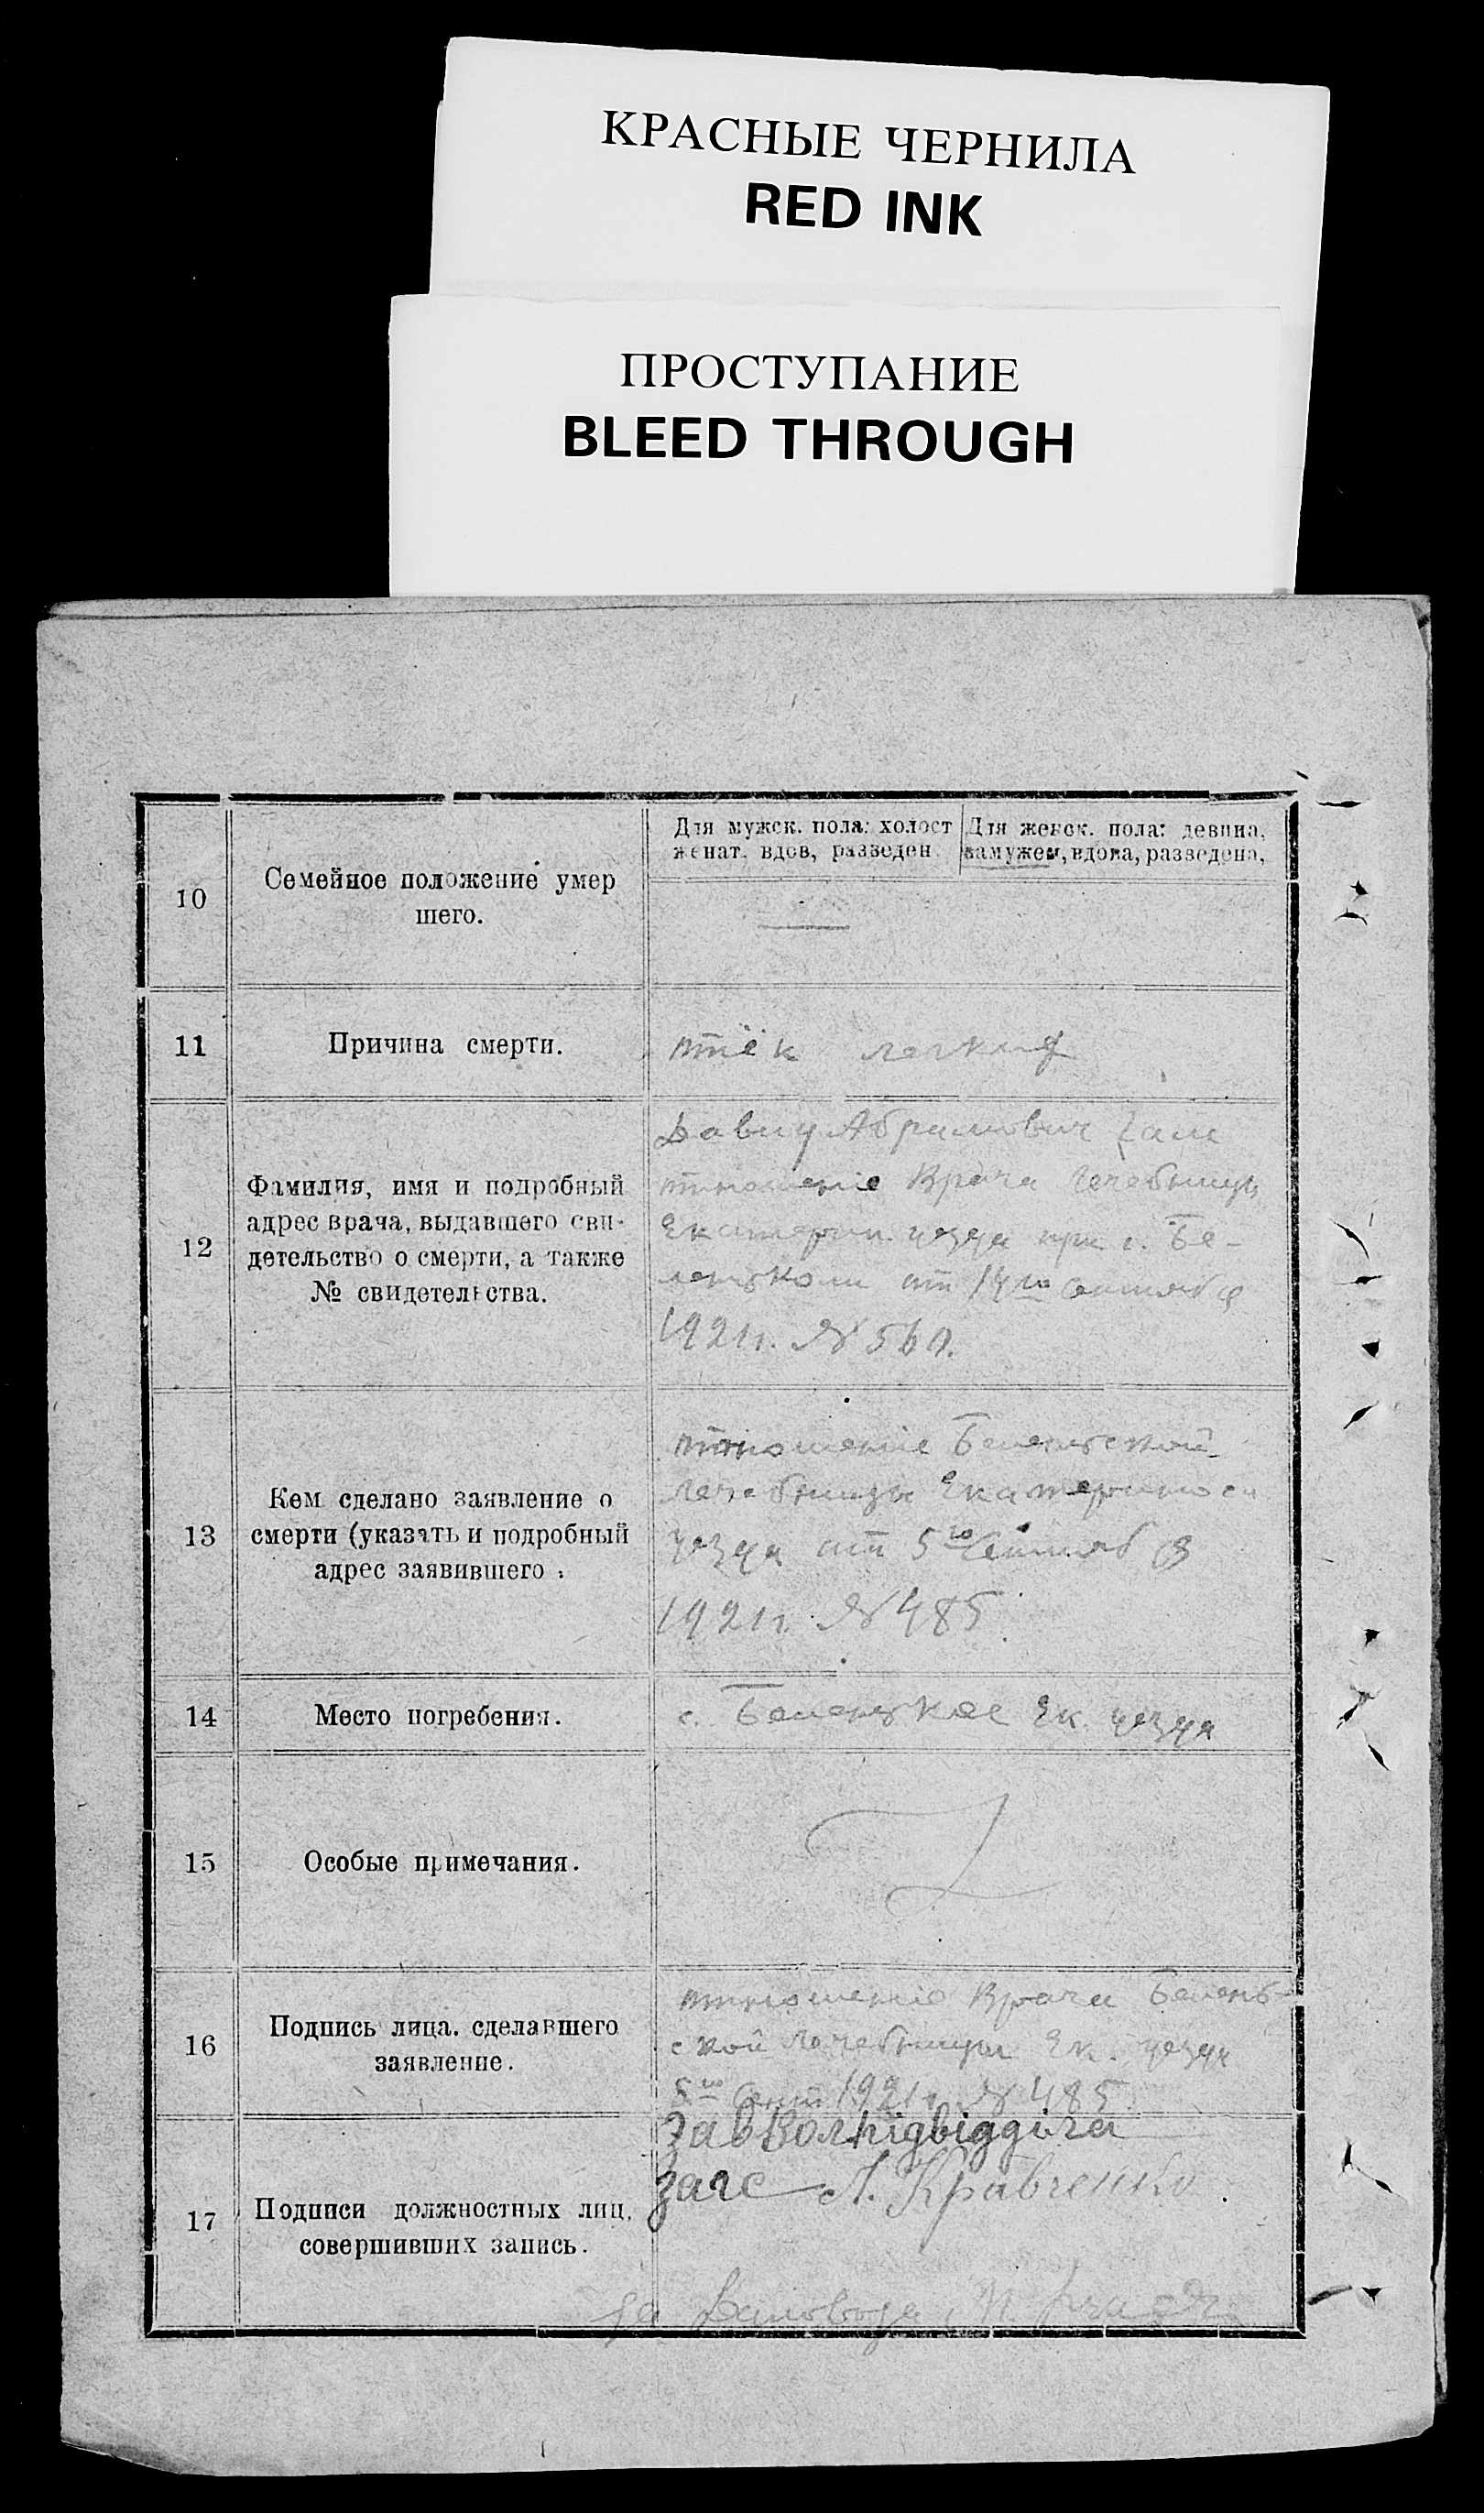 КРАСНЫЕ ЧЕРНИЛА
RED INK
ПРОСТУПАНИЕ
BLEED THROUGH
Для мужск. пола: холост
женат. вдов, разведен
Для женск. пола: девица,
замужем, вдова, разведена,
10
Семейное положение умер
шего.
11
Причина смерти.
отёк легких
12
Фамилия, имя и подробный
адрес врача, выдавшего сви-
детельство о смерти, а также
№ свидетельства.
Давид Абрамович
отношение Врача лечебницы
Екатерин. уезда при с. Бе-
леньком от 14го Сентября
1921 г. №
13
Кем сделано заявление о
смерти (указать и подробный
адрес заявившего.
отношение Беленьской
лечебницы Екатеринос
уезда от 5го Сентября
1921 г. № 485
14
Место погребения.
с. Беленькое Ек. уезда
15
Особые примечания.
16
Подпись лица. сделавшего
заявление.
отношение Врача Белень-
ской лечебницы Ек. уезда
5го Сент 1921 г. № 485
17
Подписи должностных лиц,
совершивших запись.
Зав Волпідвідділа
загс Л. Кравченко
за